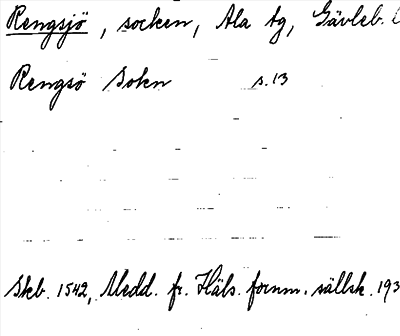 Rengsjö, socken, Ala tg, Gävleb. l
Rengsö Sokn s. 13
Skb. 1542, Medd. fr. Häls. fornm. sällsk. 193